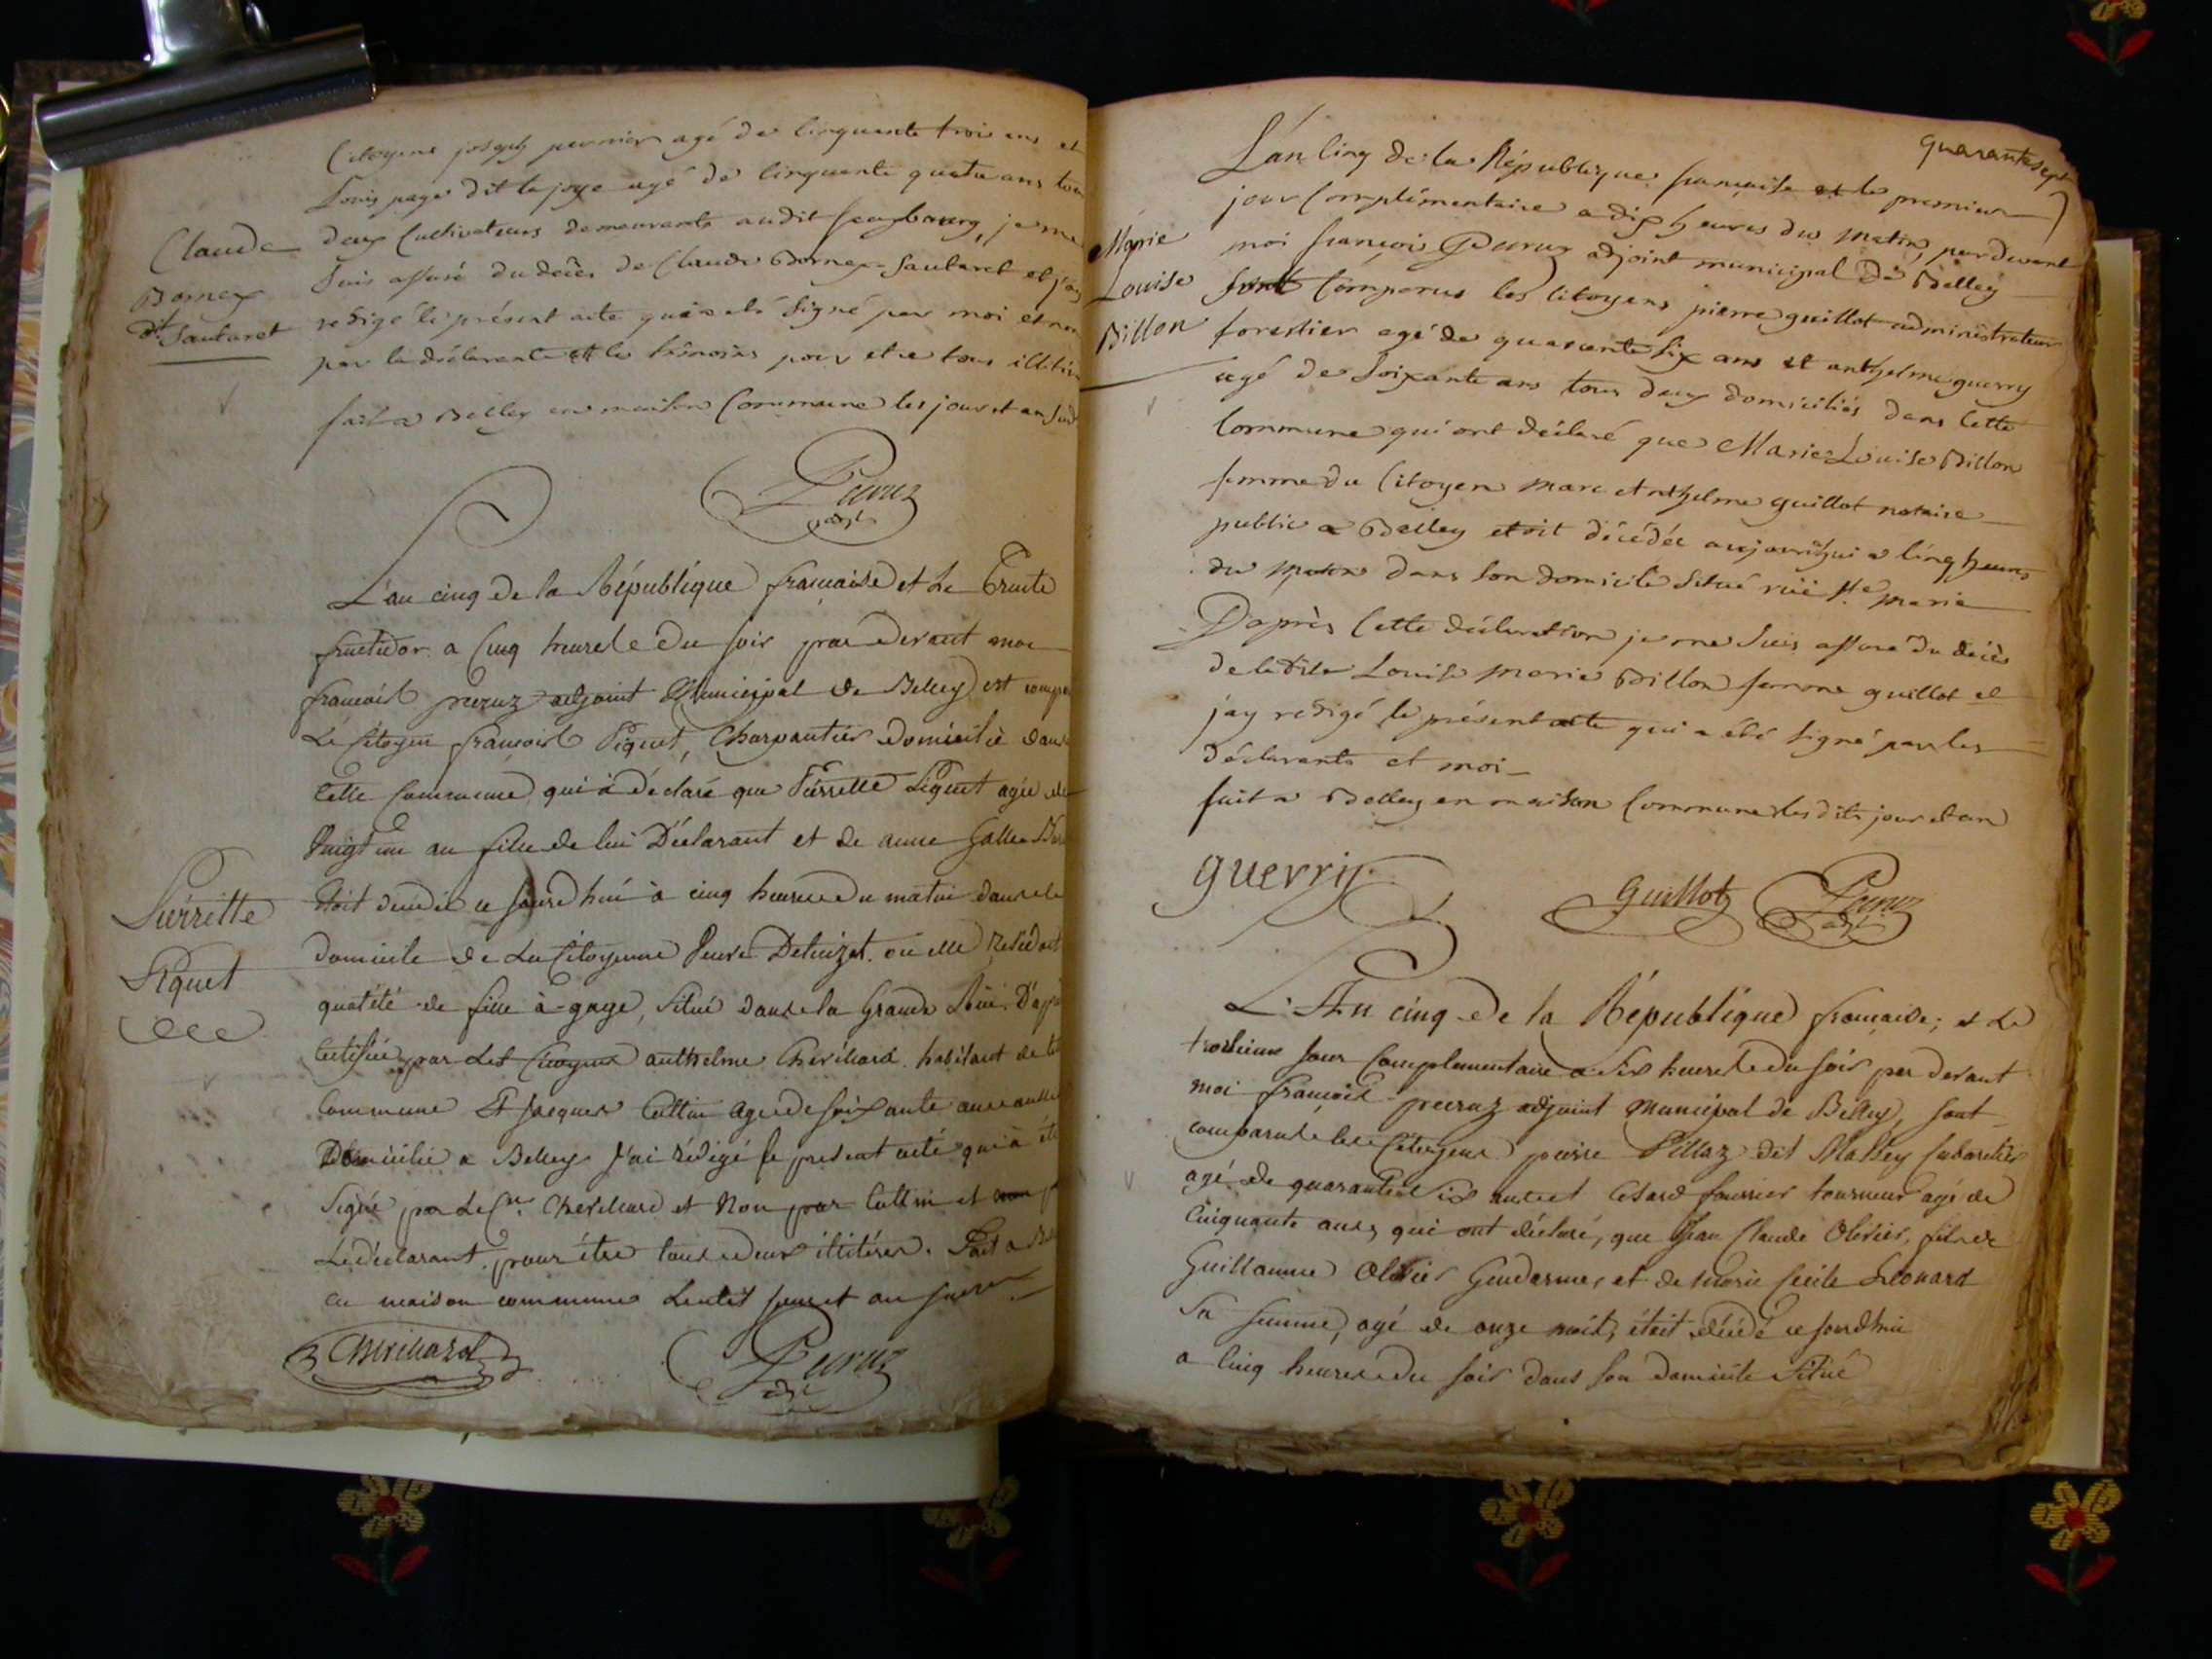 Citoyens joseph pernier agé de Cinquante trois ans et
Louis page dit la joye agé de Cinquante quatre ans tous
deux Cultivateurs demeurants audit fauxbourg, je me
Suis assuré du décès de Claude Bornex-Sautaret et j'ay
redigé le présent acte qui a été Signé par moi et non
par la déclarante et les témoins pour etre tous illitéré
fait a Belley en maison Commune les jour et an Susd
Claude
Bornex
dt Sautaret
Peiruz
adjt
L'an cinq de la République française et Le Trente
fructidor a Cinq heures du soir par devant moi
françois preruz adjoint Municipal de Belley est compar
Le Citoyen françois Piquet, Charpentier domicilié dans
Cette Commune qui a déclaré que Pierrette Piquet agée de
Vingt un an fille de lui Déclarant et de anne
étoit decedée ce jourd'hui à cinq heures du matin dans le
domicile de La Citoyenne Veuve ou elle residoit
qualité de fille à-gage, Situé dans la Grande Rüe. D'apr
Certifiée par Les Citoyens anthelme Cherillard habitant de
Commune Et Jacques Cottin agé de soixante ans
Domicilié a Belley J'ai rédigé le present acte qui à été
Signé par Le Cn Cherillard et Non par Cottin et non
Le déclarant pour être tous deux illitérés. Fait a
en maison commune Lesdits jour et an
Pierrette
Piquet
Cherillard
Peiruz
adjt
quarante sept
L'an Cinq de la République française et le premier
jour Complémentaire a dix heures du Matin, par devant
moi françois Peiruz adjoint municipal de Belley
sont Comparus les Citoyens pierre guillot administrateur
forestier agé de quarante six ans et anthelme guerry
agé de Soixante ans tous deux domiciliés dans Cette
Commune qui ont déclaré que Marie Louise Billon
femme du Citoyen Marc Anthelme guillot notaire
public a Belley etoit décédée aujourd'hui a Cinq heures
du Matin dans Son domicile Situé rüe Ste Marie
D'après Cette déclaration je me Suis assuré du décès
de ladite Louise Marie Billon femme guillot et
j'ay redigé le présent acte qui a été Signé par les
déclarants et moi
fait a Belley en maison Commune les dits jour et an
Marie
Louise
Billon
guerry
Guillot
Peiruz
adjt
L'An cinq de la République française; et Le
troisieme Jour Complementaire a Six heures du soir par devant
moi François preruz adjoint Municipal de Belley, sont
comparus les Citoyens pierre Pillaz dit Massey Cabaretier
agé de quarante six ans et Cesard fournier tourneur agé de
Cinquante ans, qui ont déclaré, que Jean Claude Olivier, fils de
Guillaume Olivier Gendarme, et de Marie Cecile Leonard
Sa femme, agé de onze mois, étoit décédé ce jourdhui
a Cinq heures du soir dans son domicile Situé